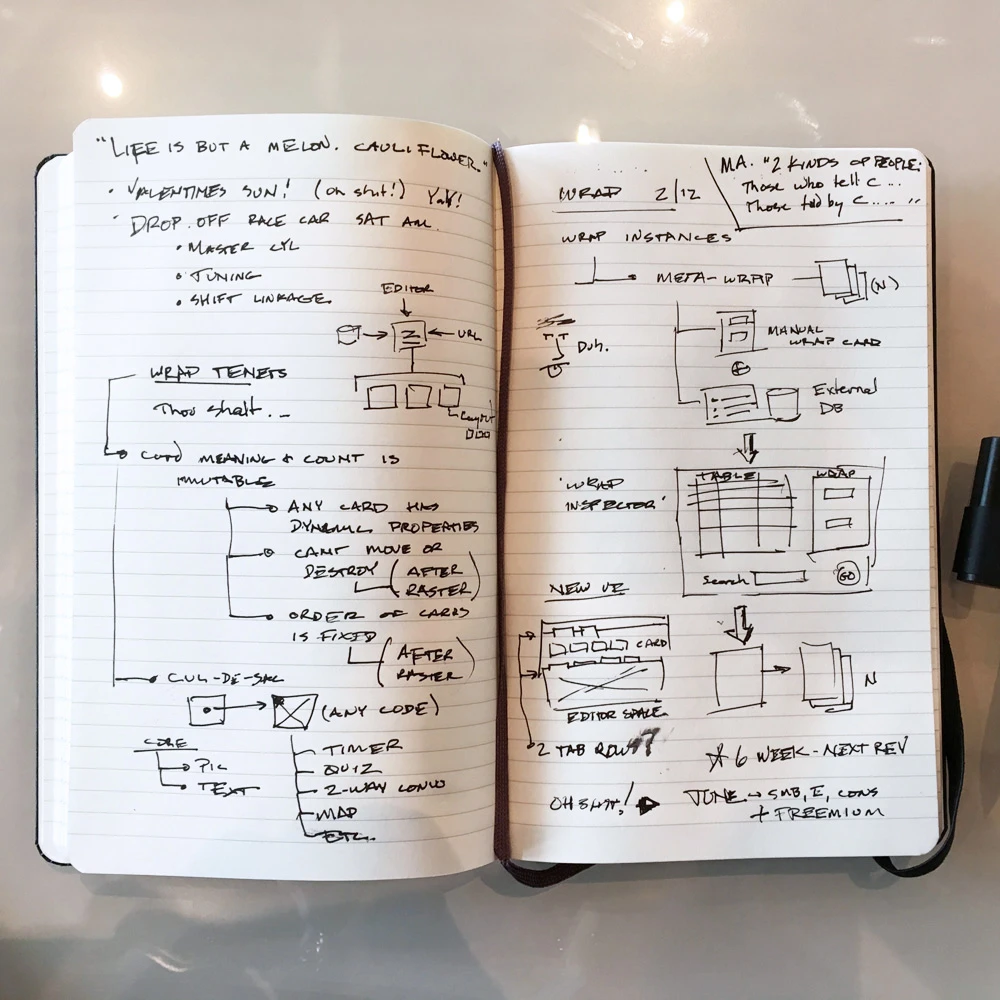 "LIFE IS BUT A MELON. CAULIFLOWER."
• VALENTIMES SUN! (oh shit!) Yay!
• DROP. OFF RACE CAR SAT AM.
• MASTER CYL
• TUNING
• SHIFT LINKAGE.
EDITOR
URL
LAYOUT
WRAP TENETS
Thou shalt...
CARD MEANING & COUNT IS
IMMUTABLE
ANY CARD HAS
DYNAMIC PROPERTIES
CANT MOVE OR
DESTROY (AFTER
RASTER)
ORDER OF CARDS
IS FIXED
(AFTER
RASTER)
CUL-DE-SAC
(ANY CODE)
CORE
PIC
TEXT
TIMER
QUIZ
2-WAY CONVO
MAP
ETC.
WRAP 2/12
MA. "2 KINDS OF PEOPLE:
Those who tell C...
Those told by C....."
WRAP INSTANCES
META-WRAP
(N)
MANUAL
WRAP CARD
Duh.
External
DB
'WRAP
INSPECTOR'
TABLE
WRAP
Search
GO
NEW UE
CARD
EDITOR SPACE
N
2 TAB ROWS
6 WEEK - NEXT REV
OH SHIT!
JUNE → SMB, E, CONS
+ FREEMIUM